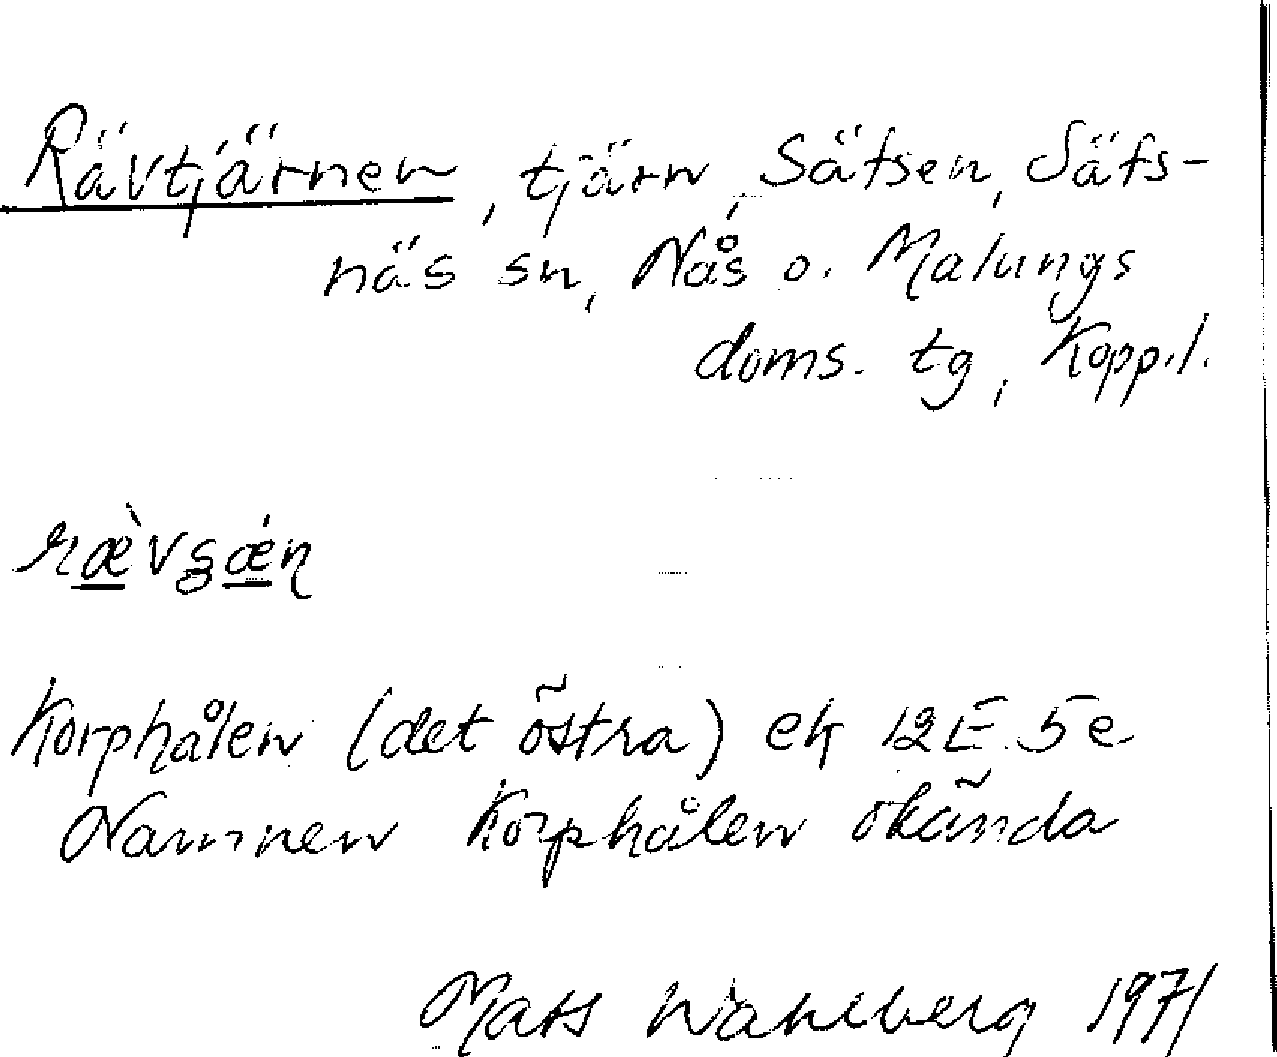 Rävtjärnen, tjärn, Säfsen, Säfs-
näs sn, Nås o. Malungs
doms. tg, Kopp.l.
Korphålen (det östra) ek 12E 5e
Namnen Korphålen okända
Mats Wahlberg 1971